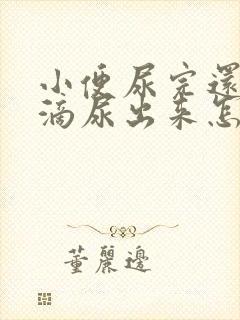 小便尿完還
滴尿出来怎
董麗邊